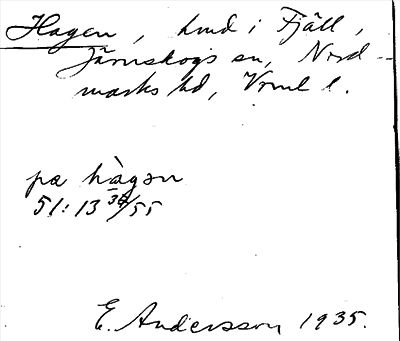 Hagen, hmd i Fjäll,
Järnskogs sn, Nord-
marks hd, Vrml l.
på hàgǝn
51:13 38/55
E. Andersson 1935.